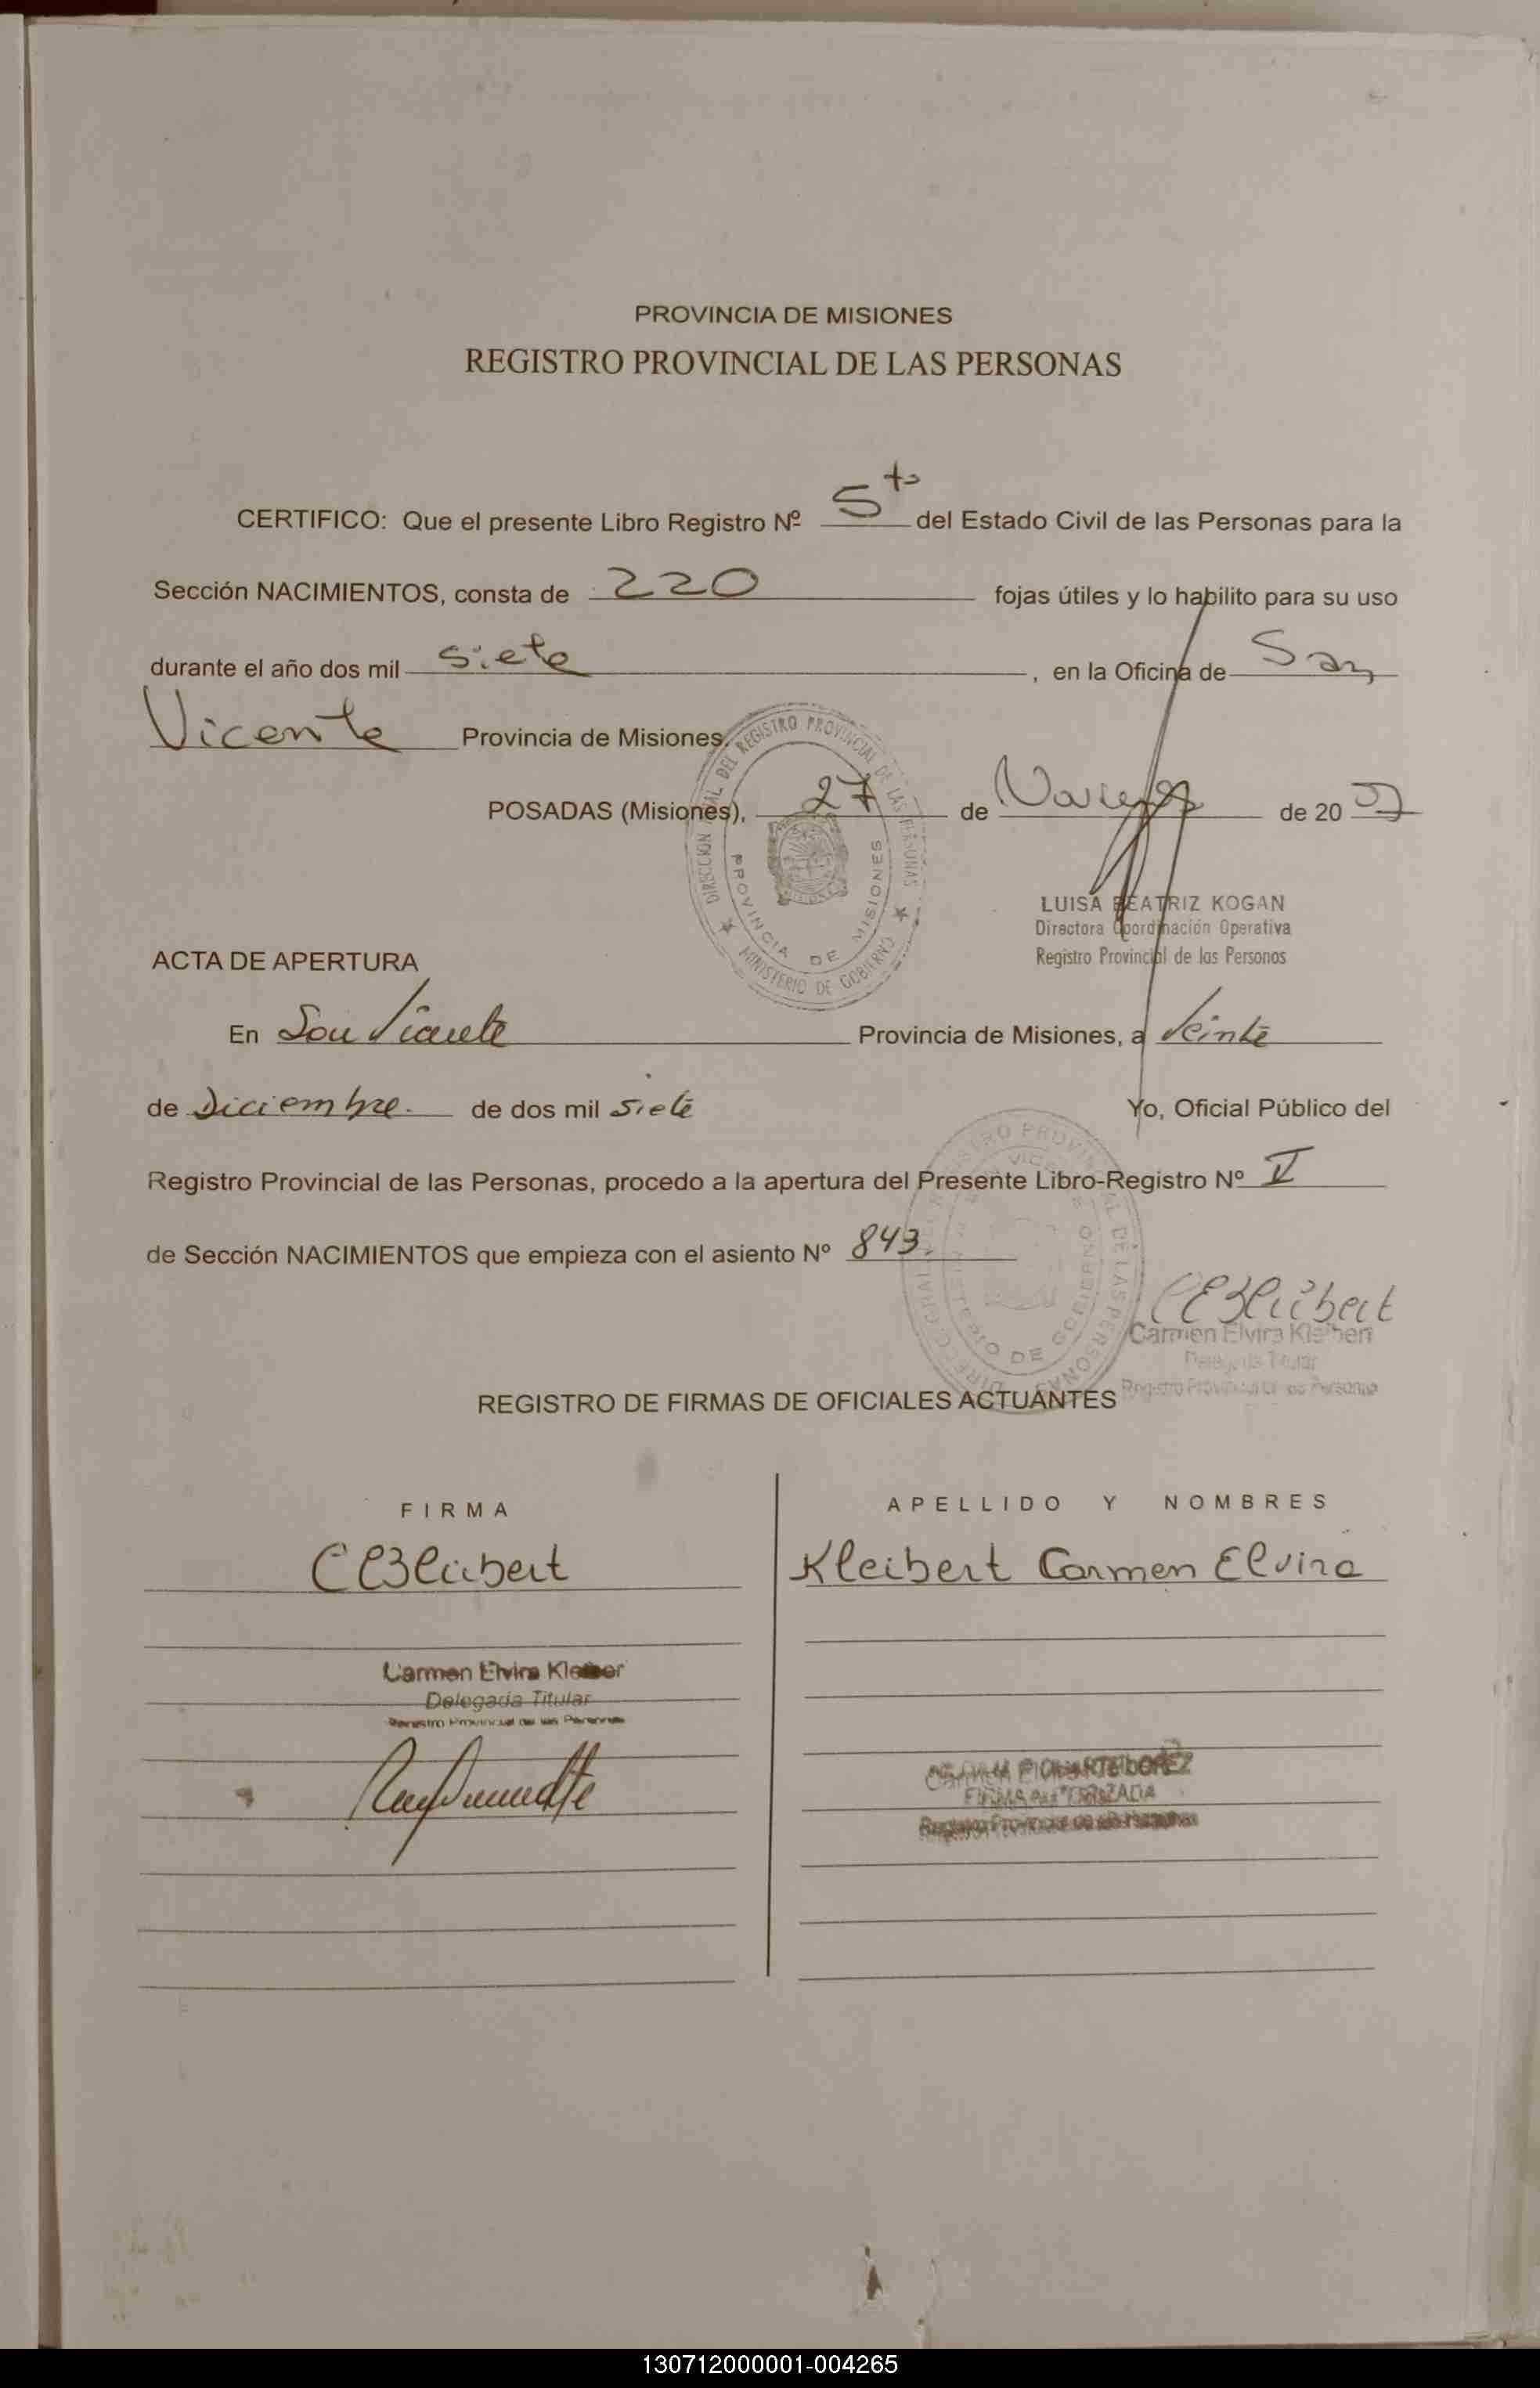 PROVINCIA DE MISIONES
REGISTRO PROVINCIAL DE LAS PERSONAS
CERTIFICO: Que el presente Libro Registro Nº 5to del Estado Civil de las Personas para la
Sección NACIMIENTOS, consta de 220 fojas útiles y lo habilito para su uso
durante el año dos mil siete, en la Oficina de San
Vicente Provincia de Misiones.
POSADAS (Misiones), 27 de de 2007
DIRECCION DEL REGISTRO PROVINCIAL DE LAS PERSONAS
PROVINCIA DE MISIONES
MINISTERIO DE GOBIERNO
LUISA BEATRIZ KOGAN
Directora Coordinación Operativa
Registro Provincial de las Personas
ACTA DE APERTURA
En San Vicente Provincia de Misiones, a Veinte
de Diciembre. de dos mil siete Yo, Oficial Público del
Registro Provincial de las Personas, procedo a la apertura del Presente Libro-Registro Nº V
de Sección NACIMIENTOS que empieza con el asiento Nº 843.
CEKleibert
Carmen Elvira Kleibert
Delegada Titular
Registro Provincial de las Personas
REGISTRO DE FIRMAS DE OFICIALES ACTUANTES
FIRMA APELLIDO Y NOMBRES
CEKleibert Kleibert Carmen Elvira
Carmen Elvira
Delegada Titular
Registro Provincial de las Personas
LOPEZ
FIRMA AUTORIZADA
Registro Provincial de las Personas
130712000001-004265